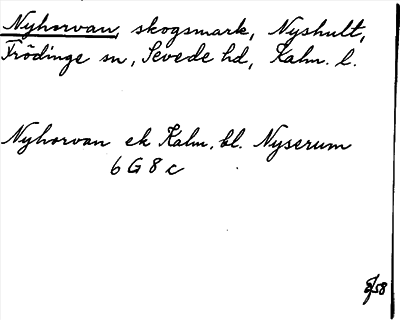 Nyhorvan, skogsmark, Nyshult,
Frödinge sn, Sevede hd, Kalm. l.
Nyhorvan ek Kalm. bl. Nyserum
6 G 8 c